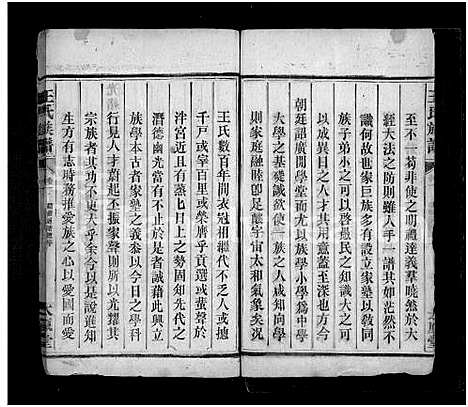 王氏族譜
至不一苟非使之明禮達義羣曉然於大
經大法之防則雖人手一譜其如茫然不
識何故世家巨族多有設立家塾以敎同
族子弟小之可以啓愚民之知識大之可
以成異日之人才其用意蓋至深也方今
朝廷詔廣開學堂而尤以族學小學爲中學
大學之基礎誠欲使一族之人咸知向學
則家庭融睦卽足釀宇宙太和氣象矣況
王氏數百年間衣冠相繼代不乏人或摠
千戸或宰百里或榮膺乎貢選或蜚聲於
泮宮近且有蒸乜日上之勢固知先代之
潛德幽光當有不止於是者誠能藉此以
族學本古者家塾之義叅以今日之學科
行見人才蔚起丕振家聲則所以光耀其
宗族者其功不更大乎余今以是說進知
生方有志時務推愛族之心以愛國而愛
王氏族譜